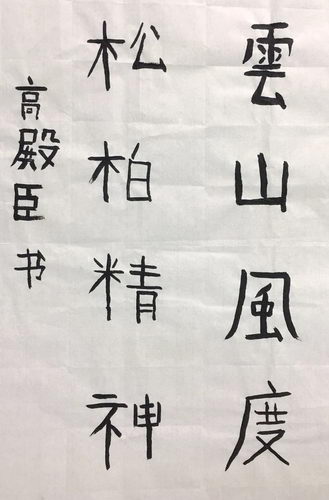 雲山風度
松柏精神
高殿臣书